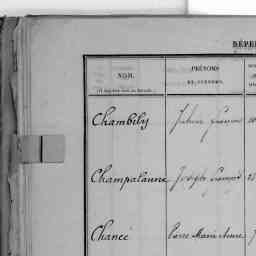 RÉPER
NOM.
PRÉNOMS
ET SURNOMS.
Chambily
Julien François
Champalaune
Joseph François
Chancé
Pierre Marie Ange